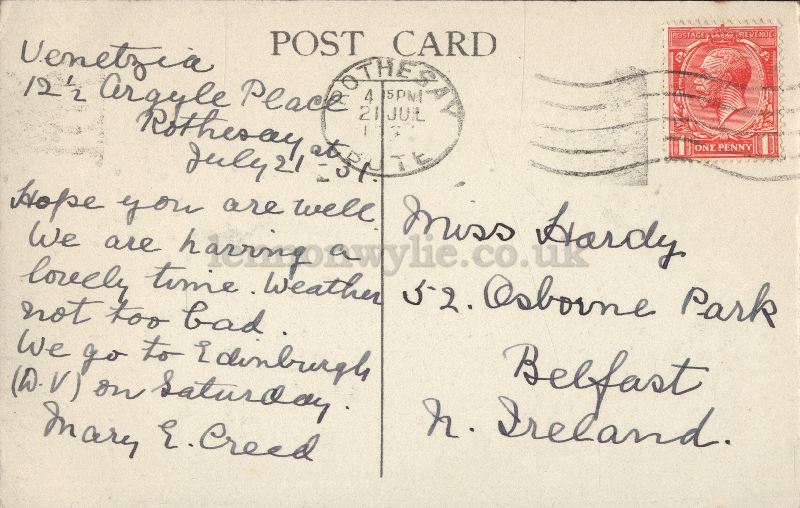 POST CARD
Venetzia
12½ Argyle Place
Rothesay
July 21st - 31.
Hope you are well.
We are having a
lovely time. Weather
not too bad.
We go to Edinburgh
(D.V) on Saturday.
Mary E. Creed
ROTHESAY
4 15 PM
21 JUL
BUTE
POSTAGE REVENUE
ONE PENNY
1 1
Miss Hardy
52. Osborne Park
Belfast
N. Ireland.
lennonwylie.co.uk